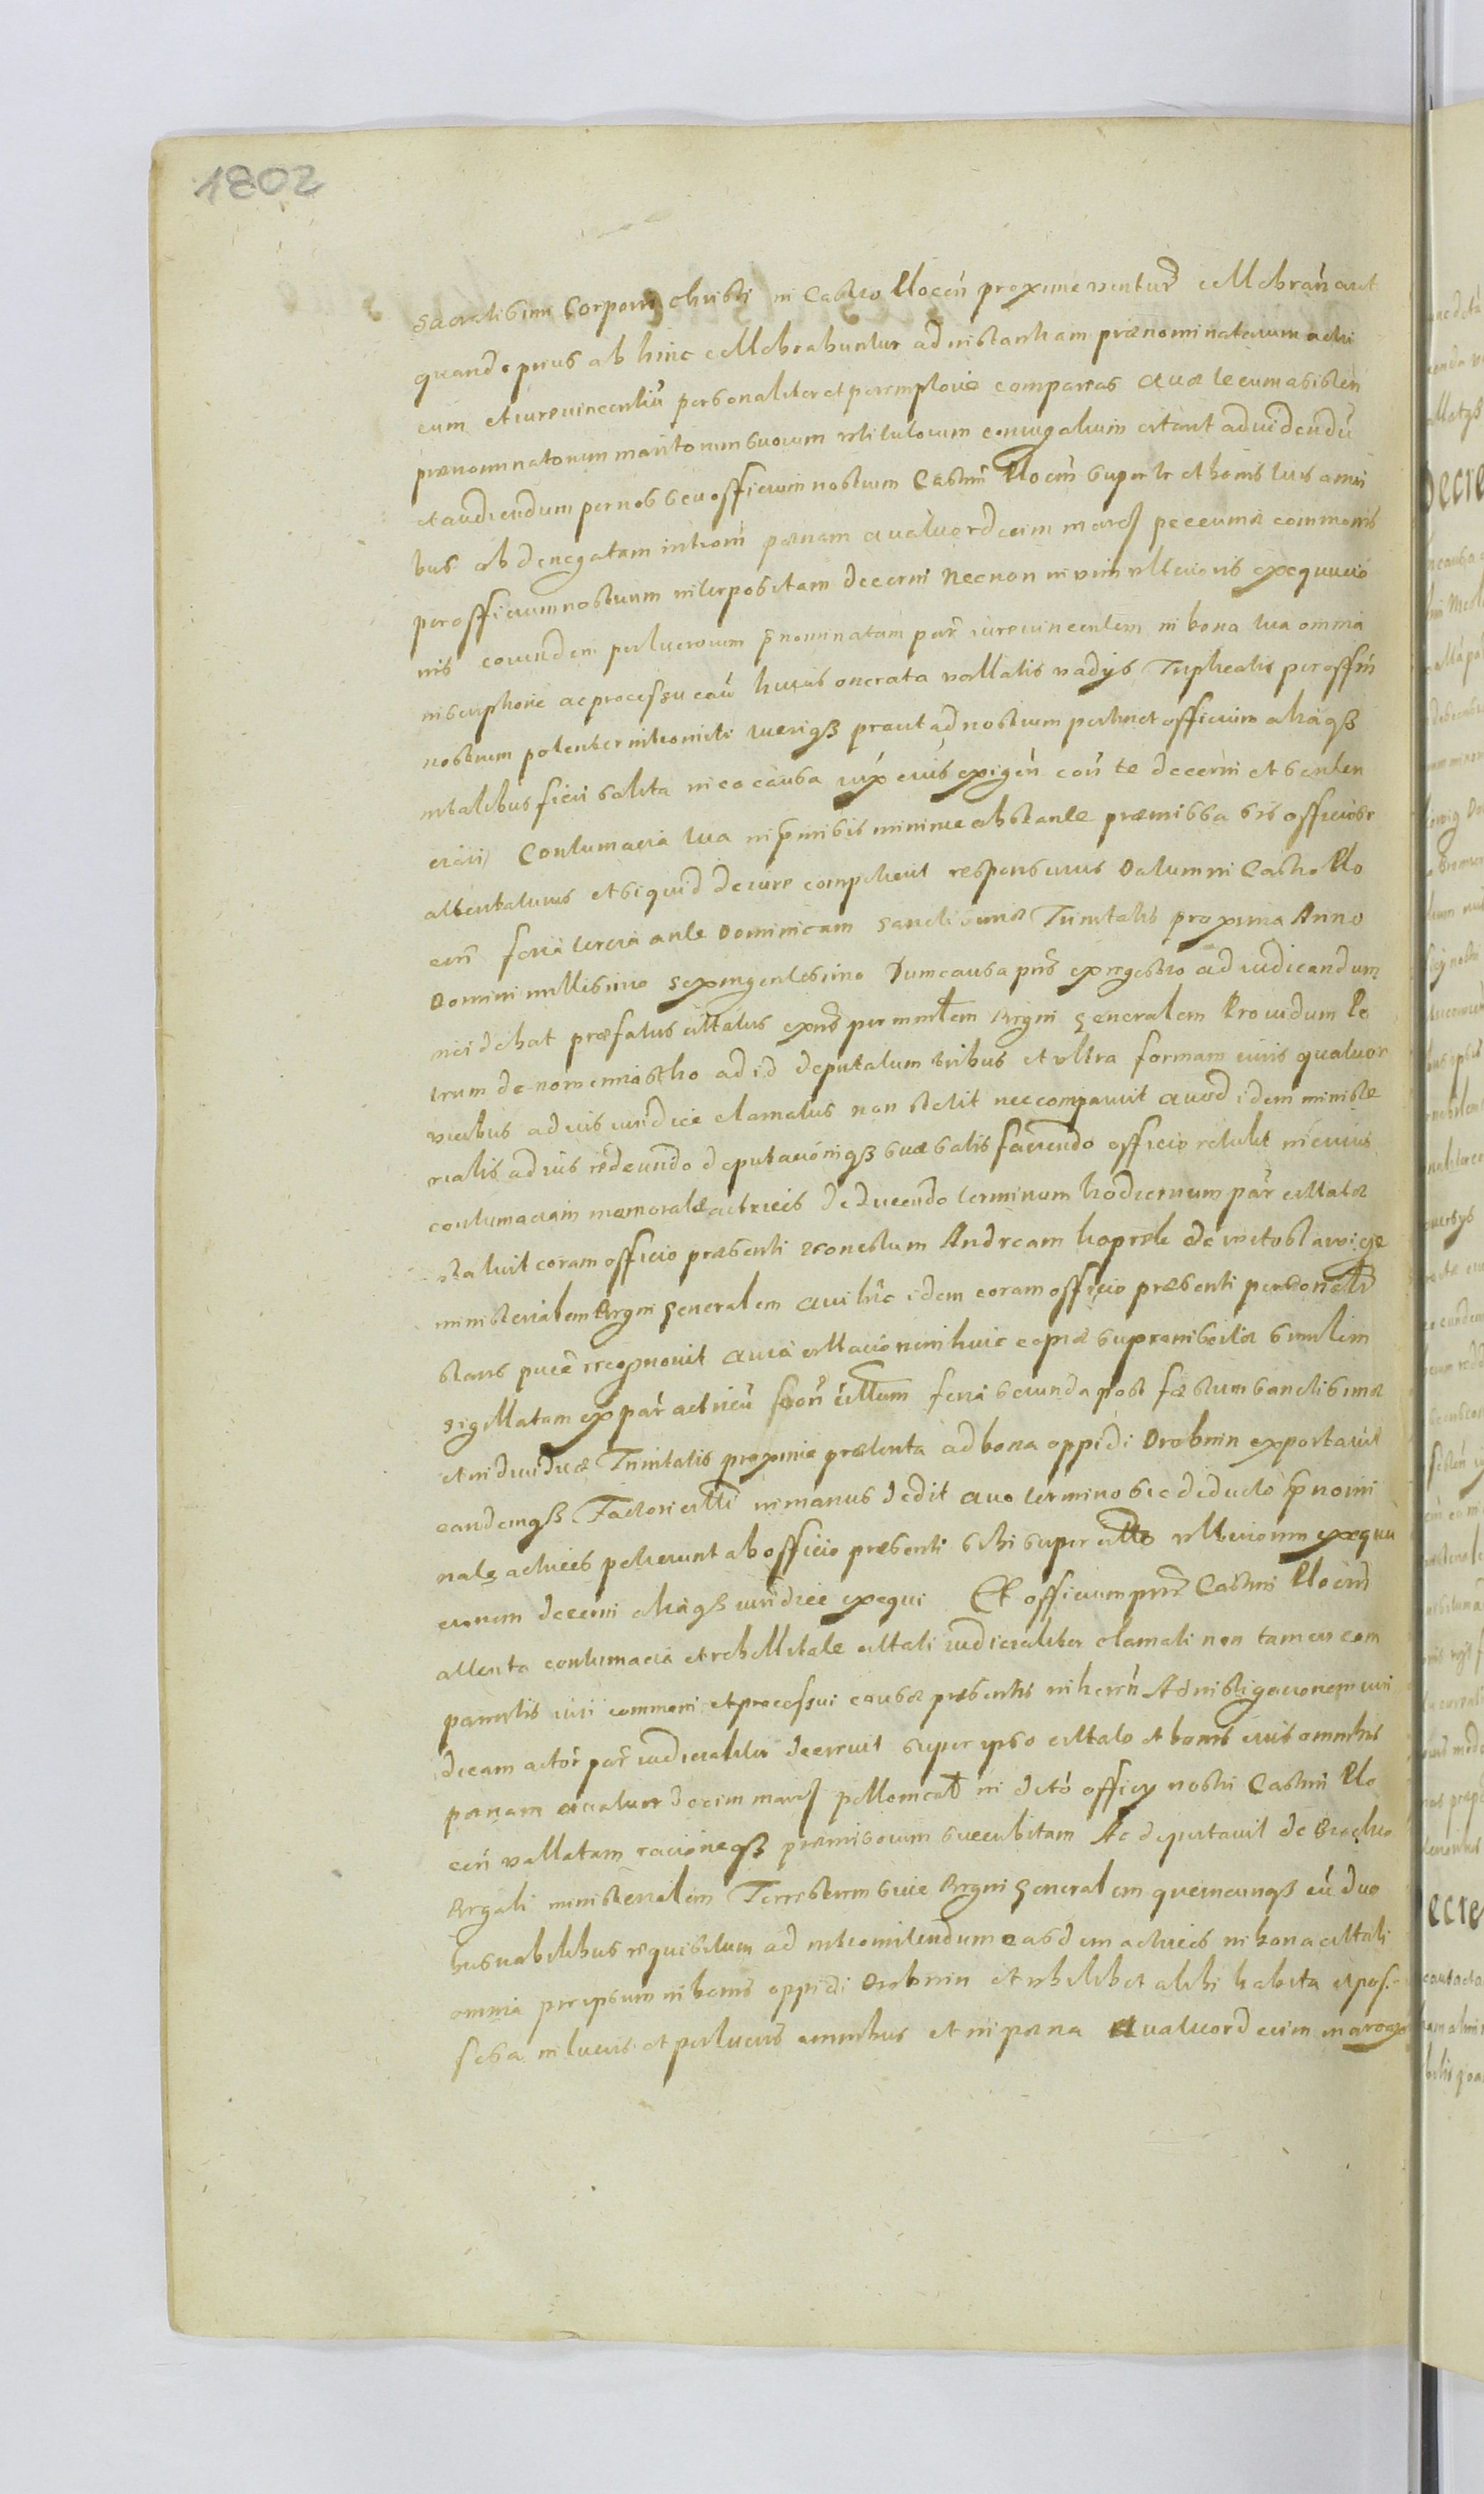 1802
Sacratissimi Corporis christi in Castro Plocen̄ proxime ventur̄ cellebran̄ aut
quando prius ab hinc cellebrabuntur ad instantiam prænominatarum actri
cum et iurevincentiū personaliter et peremptorie compareas Quæ te cum assisten̄
prænominatorum maritorum suorum vti tutorum coniugalium citant ad videndū
et audiendum per nos seu officium nostrum Castrn̄ Plocen̄ super te et bonis tuis omni
bus ob denegatam introm̄ pænam quatuordecim marc̄ peccuniæ communis
per officium nostrum interpositam decerni Necnon in vim vlterioris exequucio
nis eorundem perlucrorum p̄nominatam par̄ iurevincentem in bona tua omnia
inscriptione ac processu cau̅ huius onerata vallatis vadys Triplicatis per offin̄
nostrum potenter intromitti tuerigȝ prout ad nostrum pertinet officium aliaqȝ
in talibus fieri solita in ea causa iux̄ eius exigen̄ con̄ te decerni et senten
ciari Contumacia tua in p̄missis minime obstante præmissa sis officiose
attentaturus et si quid de iure competierit responsurus Datum in Castro Plo
cen̄ feria tercia ante Dominicam Sanctissimæ Trinitatis proxima Anno
Domini millesimo sexingentesimo Dum causa prn̄s ex regestro ad iudicandum
incidebat præfatus citatus exn̄s per mnr̄lem Regni Generalem Prouidum Pe
trum de nomenniasto ad id deputatum tribus et vltra formam iuris quatuor
vicibus ad ius iuridice clamatus non stetit nec comparuit Quod idem ministe
rialis ad ius redeundo deputacionigȝ suæ satisfaciendo officio retulit in cuius
contumaciam memoratæ actrices deducendo terminum hodiernum par̄ citatæ
statuit coram officio præsenti Honestum Andream koprek de
ministerialem Regni Generalem Qui hic idem coram officio præsenti personalr̄
stans puce recognouit Quia citacionem huic copiæ suprainsertæ similem
sigillatam ex par̄ actricū con̄ citatum feria secunda post festum Sanctissimæ
et indiuiduæ Trinitatis proxime præterita ad bona oppidi Drobnin exportauit
eandemqȝ Factori citati in manus dedit Quo termino sic deducto p̄nomi
natæ actrices petierunt ab officio præsenti sibi super citato vlteriorem exequu
cionem decerni aliaqȝ iuridice exequi Et officium prns̄ Castrn̄ Plocen̄
attenta contumacia et rebellitate citati iudicialiter clamati non tamen com
parentis iuri communi et processui causæ præsentis inheren̄ Ad instigacionem iuri
dicam actor̄ par̄ iudicialiter decreuit super ipso citato et bonis eius omnibus
pænam quatuordecim marc̄ in officij nostri Castrn̄ Plo
cen̄ vallatam racioneqȝ præmissorum succubitam Ac deputauit de Brachio
Regali ministerialem Terrestrem siue Regni Generalem quemcunqȝ cū duo
bus nobilibus requisitum ad intromittendum easdem actrices in bona citati
omnia præipsum in bonis oppidi Drobnin et vbilibet alibi habita et pos-
sessa in lucris et perlucris omnibus et in pæna Quatuordecim marcar̄